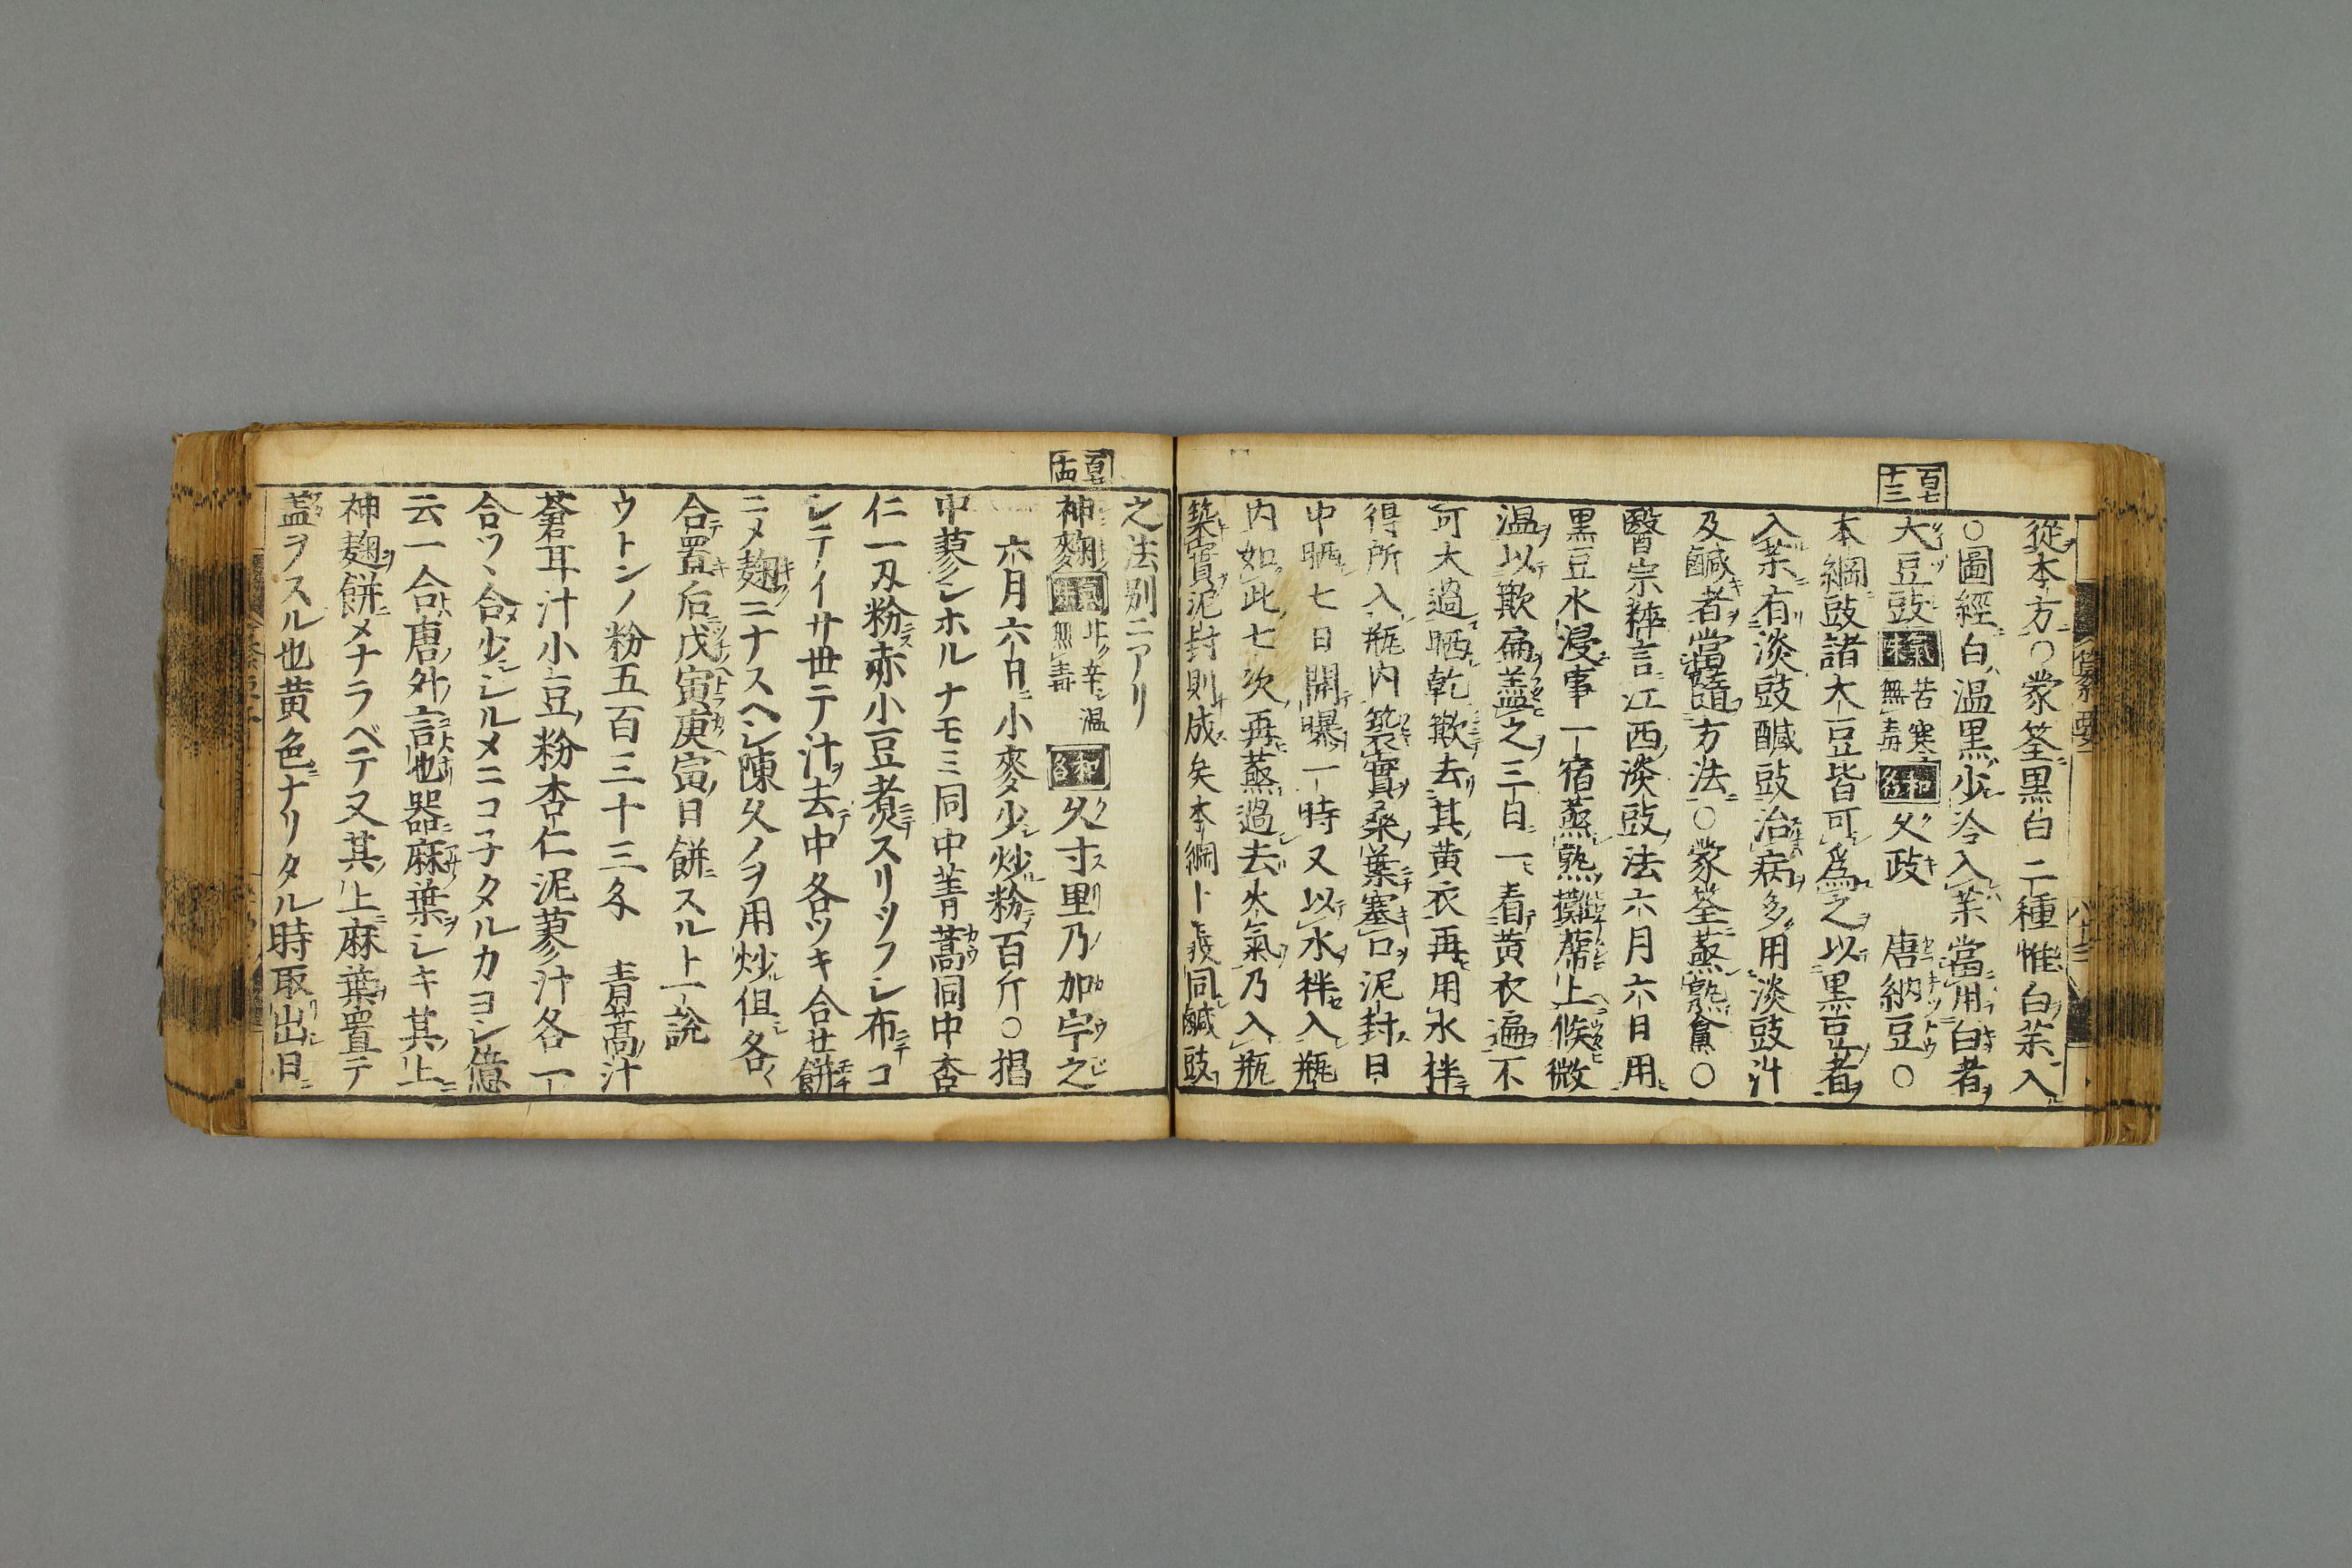 從本方○蒙筌黒白二種惟白茶入
○圖經白温黒少冷入茶當用白者
百七十三
大豆豉 氣味 苦寒無毒 和名 久政 唐納豆○
本綱豉諸大豆皆可爲之以黒豆者
入茶有淡豉醎豉治病多用淡豉汁
及鹹者當隨方法○蒙筌蒸熟盦○
醫宗粹言江西淡豉法六月六日用
黒豆水浸事一宿蒸熟攤蓆上候微
温以歎扁蓋之三日一看黄衣遍不
可大過晒乾歎去其黄衣再用水拌
得所入瓶内築實桑葉塞口泥封日
中晒七日開曝一時又以水拌入瓶
内如此七次再蒸過去火氣乃入瓶
築實泥封則成矣本綱ト義同鹹豉
之法別ニアリ
神麹 氣味 甘辛温無毒 和名 久寸里乃加宇之
六月六日小麥少炒粉百斤○搗
中蓼シホルナモミ同中菁蒿同中杏
仁一刄粉赤小豆煑スリツフシ布コ
シテイサ丗テ汁去中各ツキ合せ餅
ニメ麹ニナスヘシ陳久ノヲ用炒但各
合置后戊寅庚寅日餅スルト一説
ウトンノ粉五百三十三匁 青蒿汁
蒼耳汁小豆粉杏仁泥蓼汁各一
合ツヽ合少シシルメニコ子タルカヨシ億
云一合唐外言也器麻葉シキ其上
神麹餅メナラベテ又其上麻葉置テ
蓋ヲスル也黄色ナリタル時取出日